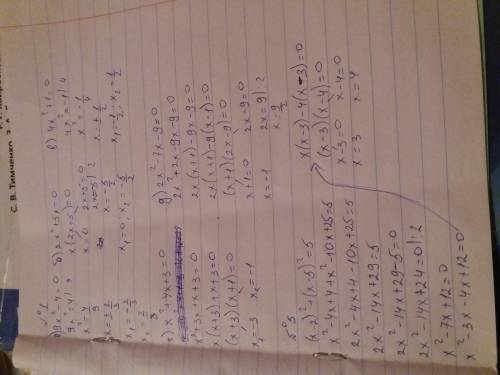 С. В. Тимченко
№1
а) 9x²-4=0
9x²=4 |:9
x²=4/9
x=±2/3
x₁=-2/3
x₂=2/3
б) 2x²+5x=0
x(2x+5)=0
x=0 2x+5=0
2x=-5 |:2
x=-5/2
x₁=0; x₂=-5/2
в) 4x²+1=0
4x²=-1 |:4
x²=-1/4
x=±1/4
x₁=-1/2; x₂=1/2
г) x²+4x+3=0
x²+3x+x+3=0
x(x+3)+x+3=0
(x+3)(x+1)=0
x₁=-3 x₂=-1
д) 2x²-7x-9=0
2x²+2x-9x-9=0
2x(x+1)-9x-9=0
2x(x+1)-9(x+1)=0
(x+1)(2x-9)=0
x+1=0 2x-9=0
x=-1 2x=9 |:2
x=9/2
№5
(x-2)²+(x-5)²=5
x²-4x+4+x²-10x+25=5
2x²-4x+4-10x+25=5
2x²-14x+29=5
2x²-14x+29-5=0
2x²-14x+24=0 |:2
x²-7x+12=0
x²-3x-4x+12=0
x(x-3)-4(x-3)=0
(x-3)(x-4)=0
x-3=0 x-4=0
x=3 x=4